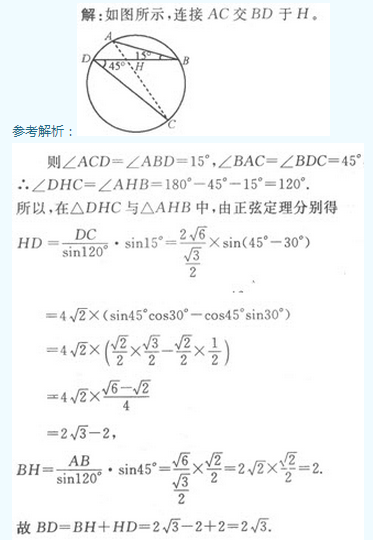 解:如图所示,连接 AC 交 BD 于 H。
A
D 15° B
45° H
C
参考解析:
则∠ACD=∠ABD=15°,∠BAC=∠BDC=45°
∴∠DHC=∠AHB=180°-45°-15°=120°.
所以,在△DHC 与△AHB 中,由正弦定理分别得
HD=DC/sin120°·sin15°=2√6/(√3/2)×sin(45°-30°)
=4√2×(sin45°cos30°-cos45°sin30°)
=4√2×(√2/2×√3/2-√2/2×1/2)
=4√2×(√6-√2)/4
=2√3-2,
BH=AB/sin120°·sin45°=√6/(√3/2)×√2/2=2√2×√2/2=2.
故 BD=BH+HD=2√3-2+2=2√3.